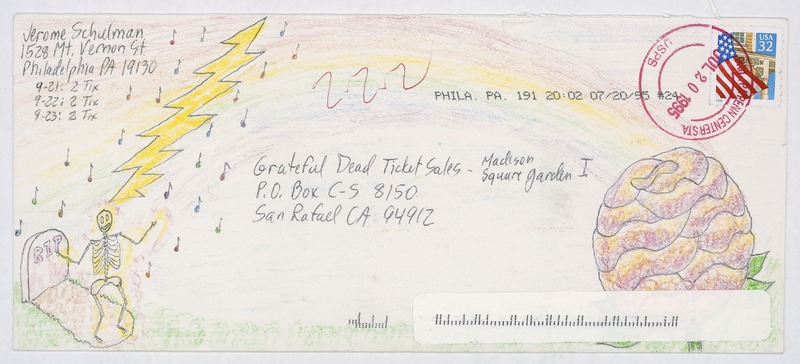 Jerome Schulman
1528 Mt. Vernon St
Philadelphia PA 19130
9-21: 2 Tix
9-22: 2 Tix
9-23: 2 Tix
2-2-2
PHILA. PA. 191 20:02 07/20/95 #24
USPS
JUL 20 1995
PENN CENTER STA
USA
32
Grateful Dead Ticket Sales - Madison Square Garden I
P.O. Box C-S 8150
San Rafael CA 94912
RIP